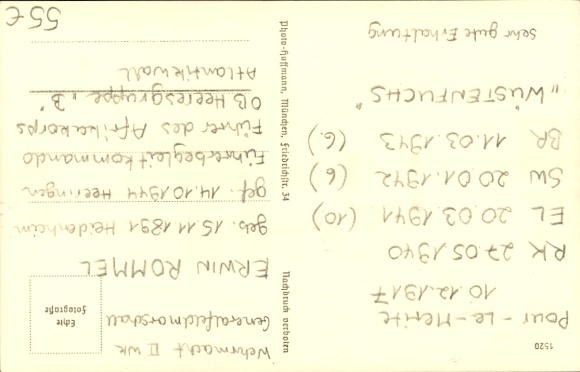 1520
Pour-Le-Merite
10.12.1917
RK 27.05.1940
EL 20.03.1941 (10)
SW 20.01.1942 (6)
BR 11.03.1943 (6.)
„WÜSTENFUCHS"
Sehr gute Erhaltung
Nachdruck verboten
Photo-Hoffmann, München, Friedrichstr. 34
Wehrmacht II WK
Generalfeldmarschall
Echte
Fotografie
ERWIN ROMMEL
geb. 15.11.1891 Heidenheim
gef. 14.10.1944 Herrlingen
Führerbegleitkommando
Führer des Afrikakorps
OB Heeresgruppe „B"
Atlantikwall
55€